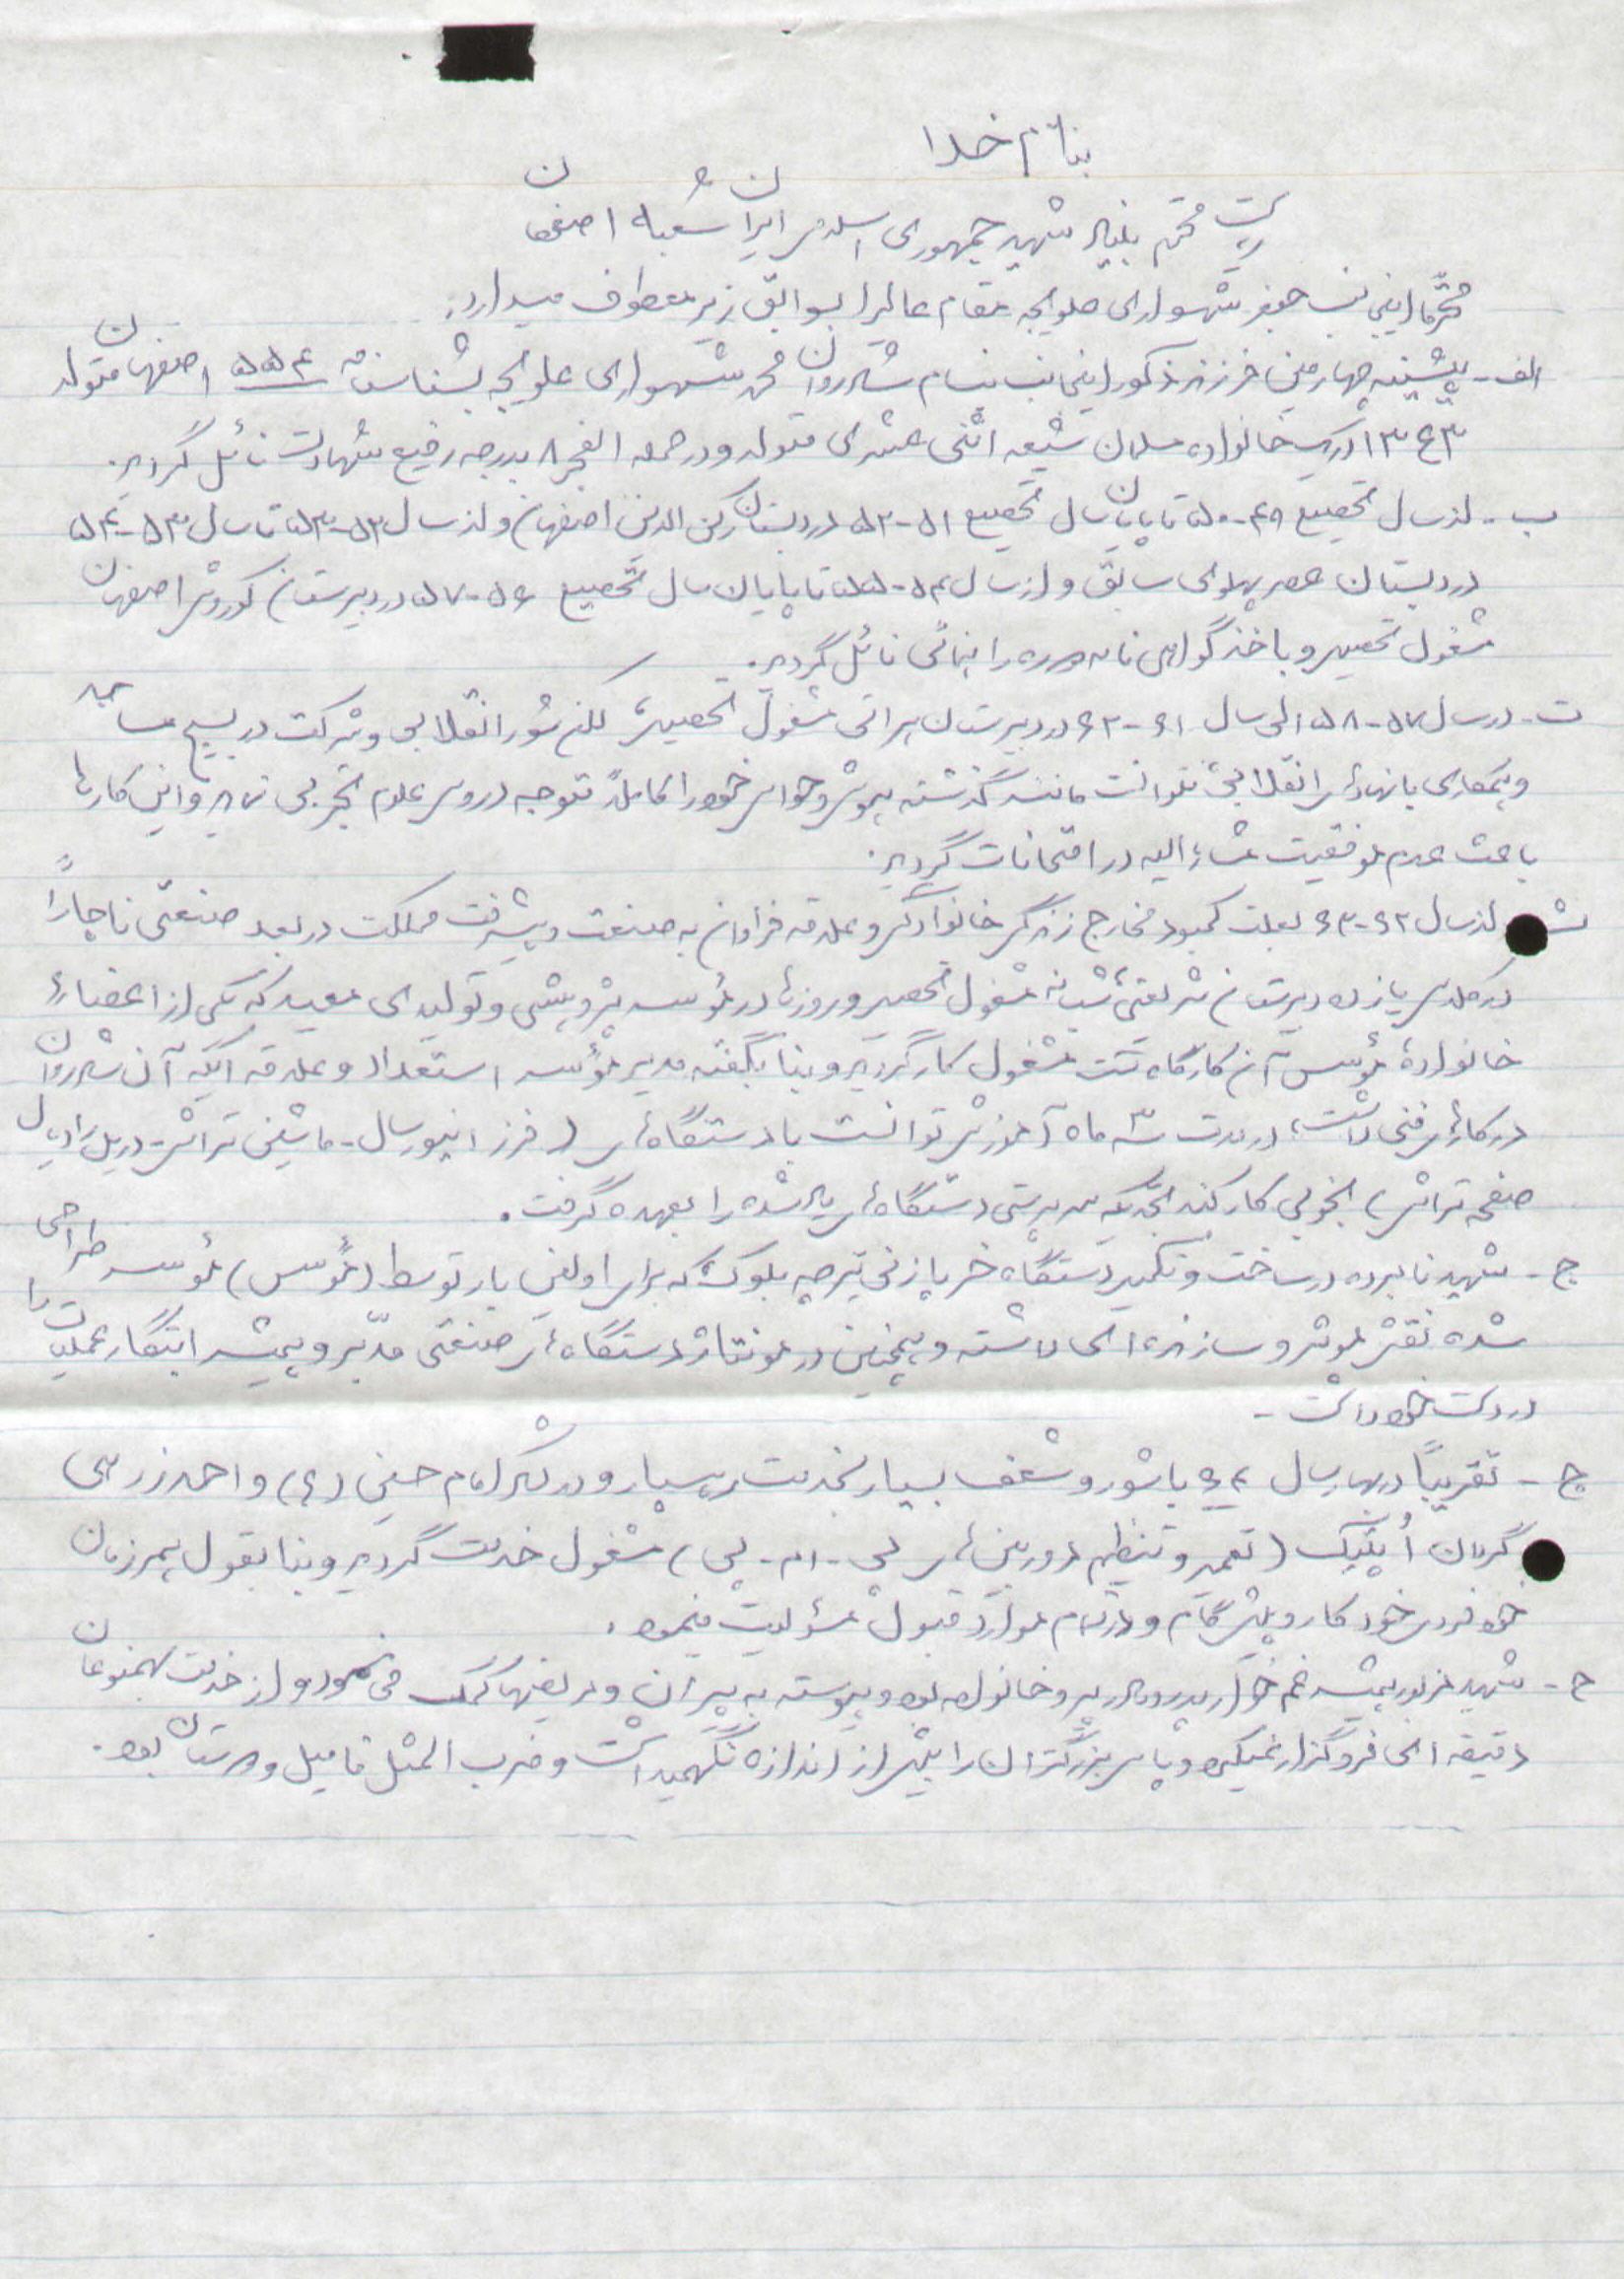 بنام خدا
ریاست محترم بنیاد شهید جمهوری اسلامی ایران شعبه اصفهان
محترماً اینجانب جعفر شهسواری علویجه مقام عالی را بسوابق زیر معطوف میدارد:
الف - پیشینه چهارمین فرزند ذکور اینجانب بنام شادروان محمد شهسواری علویجه بشناسنامه ۵۵۴ اصفهان متولد
۱۳۴۳ در یک خانواده مسلمان شیعه اثنی عشری متولد و در حمله والفجر ۸ بدرجه رفیع شهادت نائل گردید.
ب - از سال تحصیلی ۴۹-۵۰ تا پایان سال تحصیلی ۵۱-۵۲ در دبستان رکن الدین اصفهان و از سال ۵۲-۵۳ تا سال ۵۳-۵۴
در دبستان عصر پهلوی سابق و از سال ۵۴-۵۵ تا پایان سال تحصیلی ۵۶-۵۷ در دبیرستان کوروش اصفهان
مشغول تحصیل و باخذ گواهی نامه دوره راهنمائی نائل گردید.
ت - در سال ۵۷-۵۸ الی سال ۶۱-۶۲ در دبیرستان هراتی مشغول تحصیل لکن شور انقلابی و شرکت در بسیج مساجد
و همکاری با نهادهای انقلابی نتوانست مانند گذشته هوش و حواس خود را کاملاً متوجه دروس علوم تجربی نماید و این کارها
باعث عدم موفقیت مشارالیه در امتحانات گردید.
ث از سال ۶۲-۶۳ بعلت کمبود مخارج زندگی خانوادگی و علاقه فراوان به صنعت و پیشرفت مملکت در بعد صنعتی ناچاراً
در کلاس یازده دبیرستان شریعتی شبانه مشغول تحصیل و روزها در مؤسسه پژوهشی و تولیدی مفید که یکی از اعضاء
خانواده مؤسس آن کارگاه است مشغول کار گردید و بنا بگفته مدیر مؤسسه استعداد و علاقه ایکه آن شادروان
در کارهای فنی داشت، در مدت سه ماه آموزش توانست با دستگاههای (فرز انیورسال - ماشین تراش - دریل رادیال
صفحه تراش) بخوبی کار کند بحدیکه سرپرستی دستگاههای یاد شده را بعهده گرفت.
ج - شهید نامبرده در ساخت و تکمیل دستگاه خرپا زنی تیرچه بلوک که برای اولین بار توسط (مؤسس) مؤسسه طراحی
شده نقش موثر و سازنده ای داشته و همچنین در مونتاژ دستگاههای صنعتی مدبر و همیشه ابتکار عملیات را
در دست خود داشت -
چ - تقریباً در بهار سال ۶۴ با شور و شعف بسیار بخدمت رهسپار و در لشکر امام حسین (ع) واحد زرهی
گردان اُپتیک (تعمیر و تنظیم دوربینهای پی - ام - پی) مشغول خدمت گردید و بنا بقول همرزمان
خود فردی خودکار و پیش گام و در تمام موارد قبول مسئولیت مینمود.
ح - شهید مزبور همیشه غم خوار پدر و مادر پیر و خانواده بود و پیوسته به پیران و مریضها کمک می نمود و از خدمت بهمنوعان
دقیقه ای فروگذار نمیکرد و پاس بزرگتران را بیش از اندازه نگهمیداشت و ضرب المثل فامیل و دوستان بود.